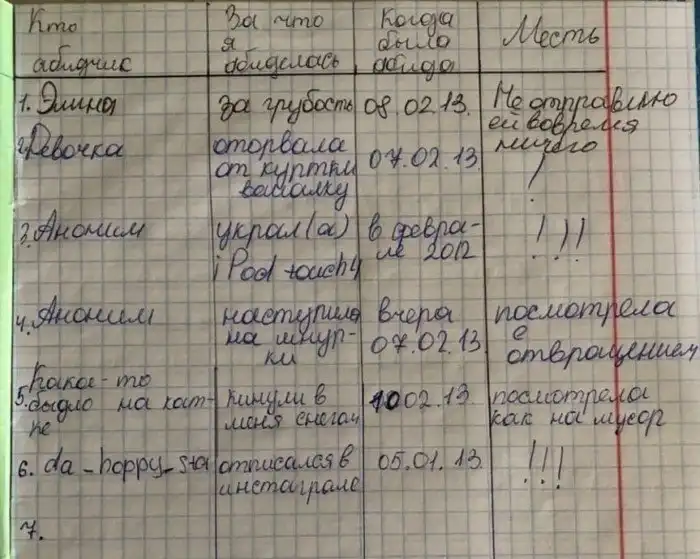 Кто абидчик | За что я абиделась | Когда была абида | Месть
1. Элина | за грубость | 08.02.13. | Не отправлю ей вовремя ничего
2. Девочка | оторвала от куртки вешалку | 07.02.13 | !
3. Аноним | украл(а) iPod touch 4 | в феврале 2012 | !!!
4. Аноним | наступила на шнурки | вчера 07.02.13 | посмотрела с отвращением
5. Какое-то быдло на катке | кинули в меня снегом | 10 02.13 | посмотрела как на мусор
6. da_happy_sta | отписался в инстаграме | 05.01.13. | !!!
7.